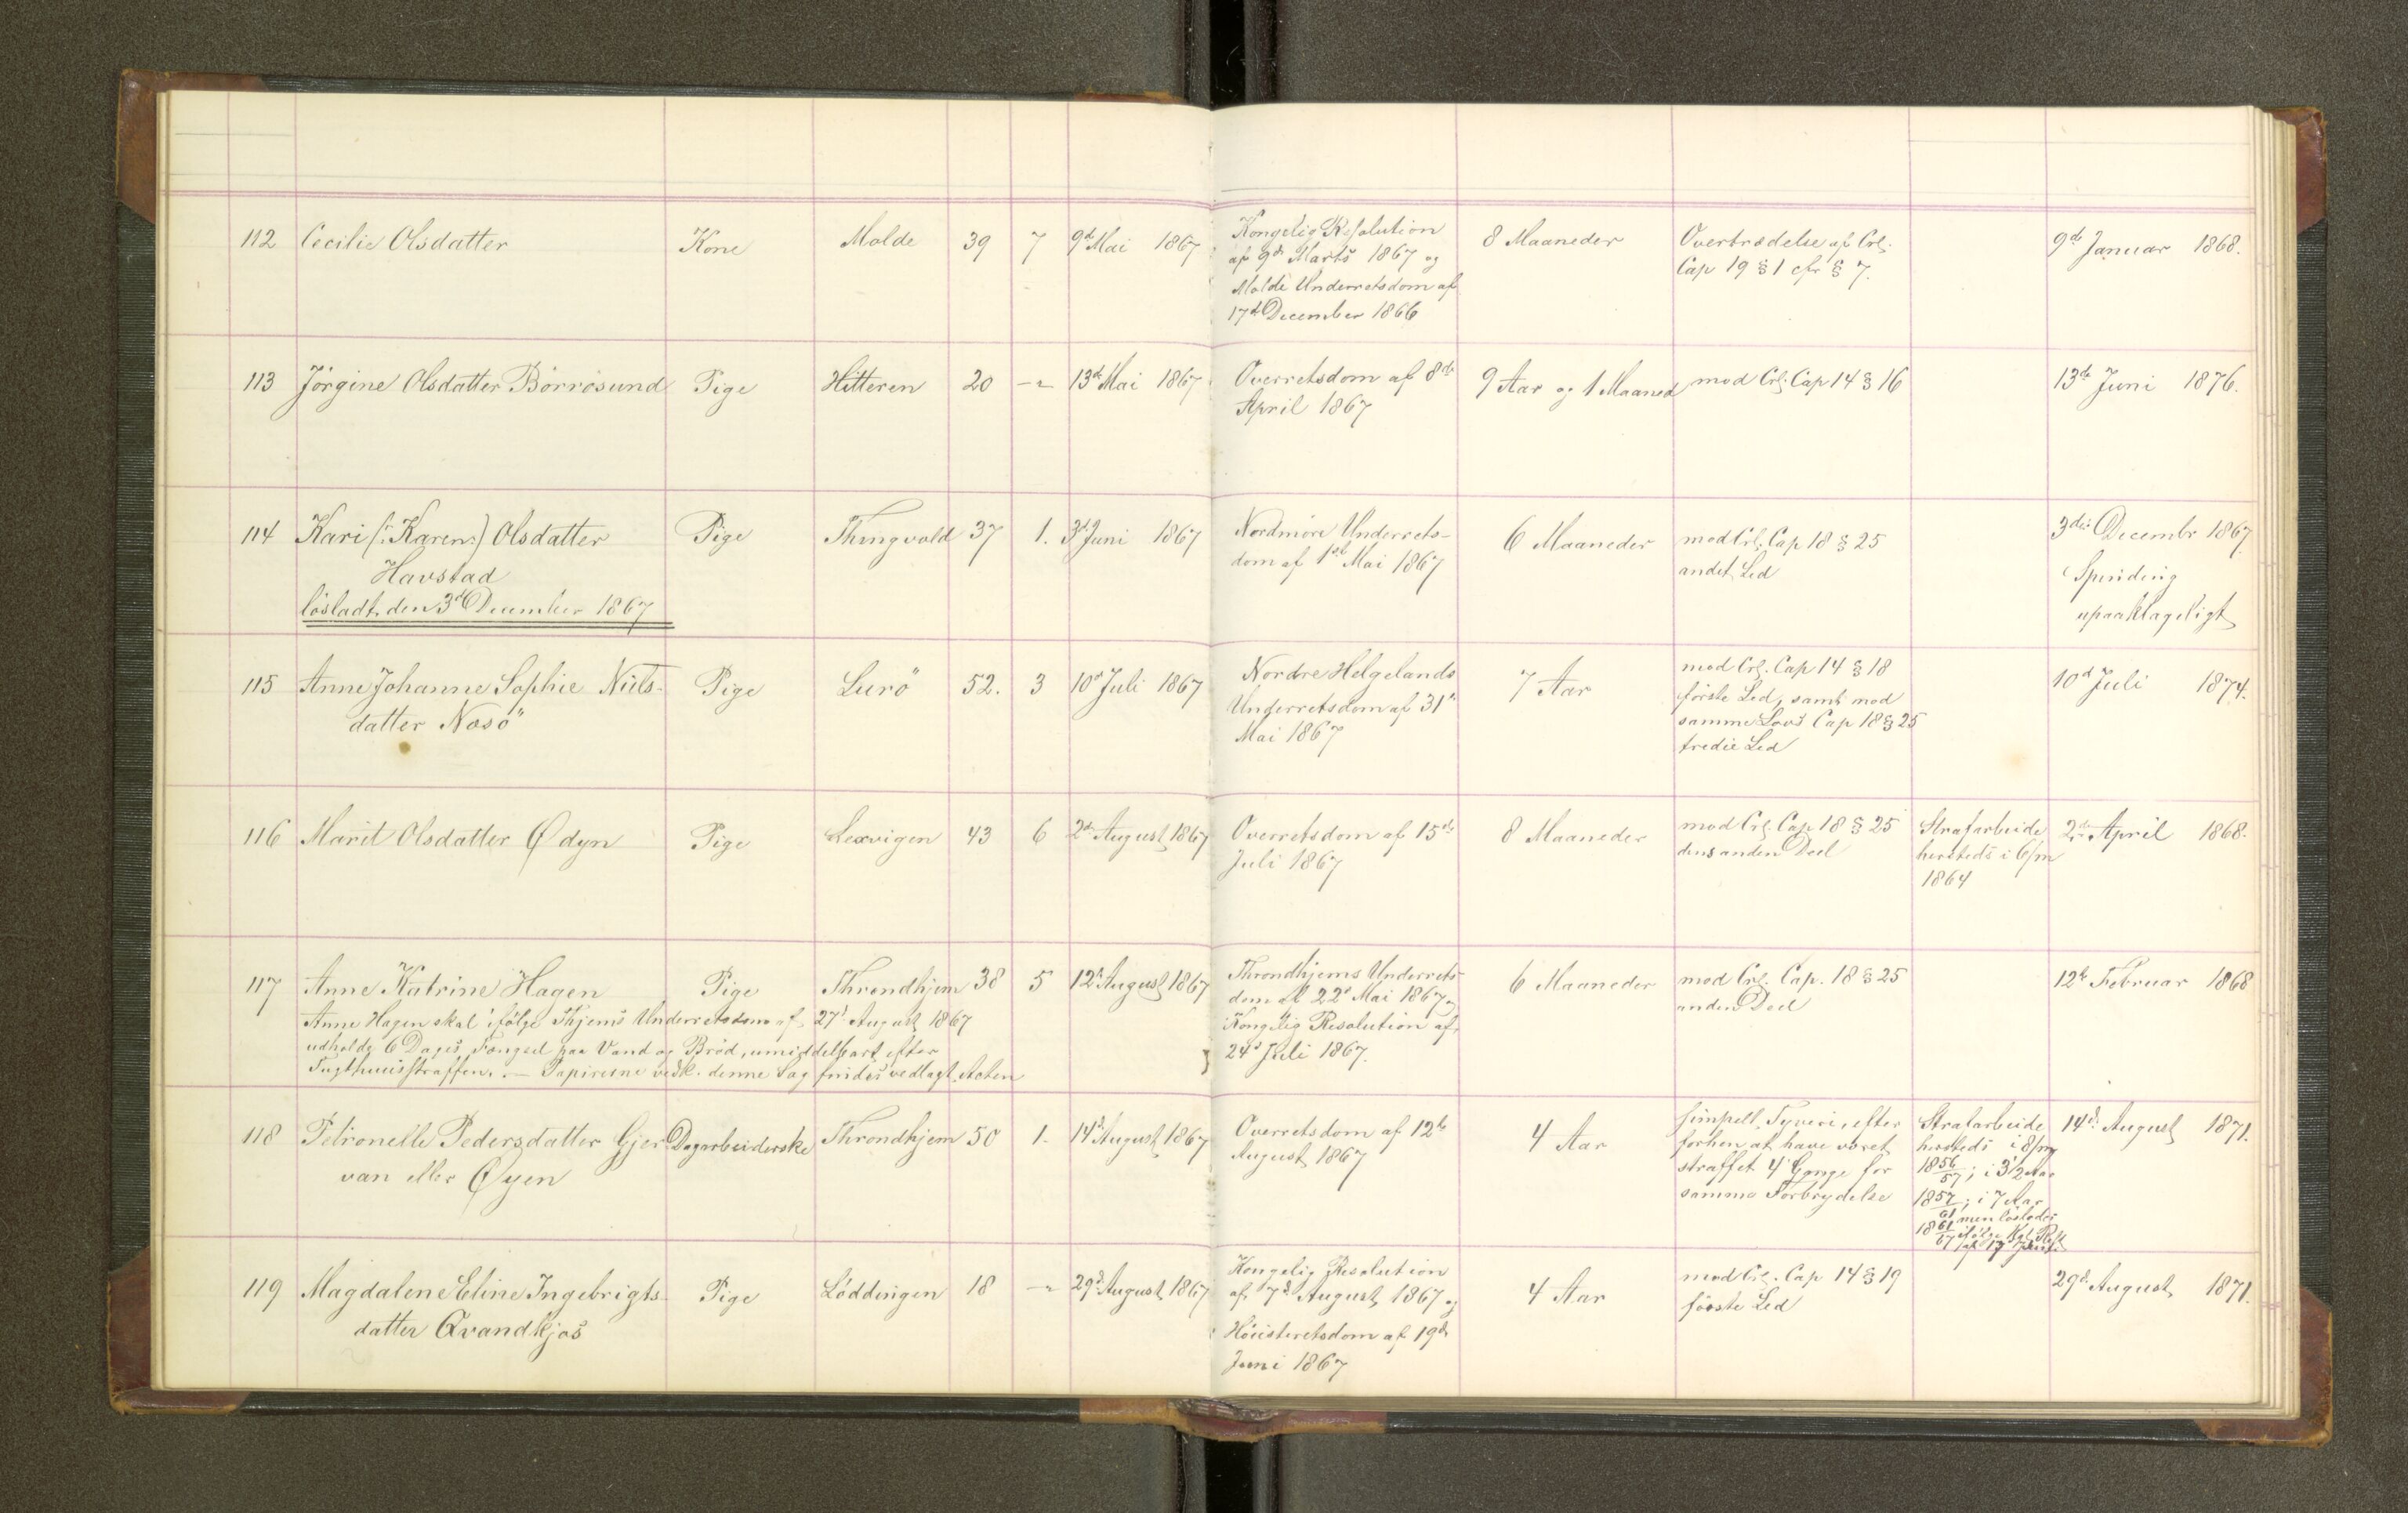 112 Cecilie Olsdatter Kone Molde 39 7 9de Mai 1867 Kongelig Resolution 8 Maaneder Overtrædelse af Crl. 9de Januar 1868.
af 9de Marts 1867 og Cap 19 § 1 cfr § 7.
Molde Underretsdom af
17de December 1866
113 Jörgine Olsdatter Börrösund Pige Hitteren 20 - " 13de Mai 1867 Overretsdom af 8de 9 Aar og 1 Maaned mod Crl. Cap 14 § 16 13de Juni 1876.
April 1867
114 Kari (: Karen:) Olsdatter Pige Thingvold 37 1. 3d Juni 1867 Nordmöre Underrets- 6 Maaneder mod Crl. Cap 18 § 25 3die Decembr 1867
Havstad dom af 1ste Mai 1867 andet Led Spinding
lösladt den 3d December 1867 upaaklageligt
115 Anne Johanne Sophie Niels- Pige Lurö 52. 3 10de Juli 1867 Nordre Helgelands 7 Aar mod Crl. Cap 14 § 18 10d Juli 1874.
datter Næsö Underretsdom af 31" förste Led, samt mod
Mai 1867 samme Lovs Cap 18 § 25
tredie Led
116 Marit Olsdatter Ødyn Pige Lexvigen 43 6 2de August 1867 Overretsdom af 15de 8 Maaneder mod Crl. Cap 18 § 25 Strafarbeide 2de April 1868.
Juli 1867 dens anden Deel hersteds i 6/m
1864
117 Anne Katrine Hagen Pige Throndhjem 38 5 12te August 1867 Throndhjems Underrets- 6 Maaneder mod Crl. Cap. 18 § 25 12te Februar 1868
dom af 22d Mai 1867 og anden Deel
Anne Hagen skal ifölge Thjems Underretsdom af 27d August 1867 Kongelig Resolution af
udholde 6 Dages Fængsel paa Vand og Bröd, umiddelbart efter 24d Juli 1867.
Tugthuusstraffen. — Papirerne vedk. denne Sag findes vedlagt Acten
118 Petronelle Pedersdatter Gjer Dagarbeiderske Throndhjem 50 1. 14d August 1867 Overretsdom af 12te 4 Aar simpelt Tyveri, efter Strafarbeide 14d August 1871.
van eller Øyen August 1867 forhen at have været hersteds i 8/m
straffet 4 Gange for 1856/57; i 3 1/2 Aar
samme Forbrydelse 1857/61; i 7 Aar
1861/67 men löslades
ifölge Kgl. Res.
af 17
119 Magdalene Eline Ingebrigts- Pige Löddingen 18 - " 29d August 1867 Kongelig Resolution 4 Aar mod Crl. Cap 14 § 19 29d August 1871.
datter Qvandkjos af 7d August 1867 og förste Led
Höiesteretsdom af 19de
Juni 1867